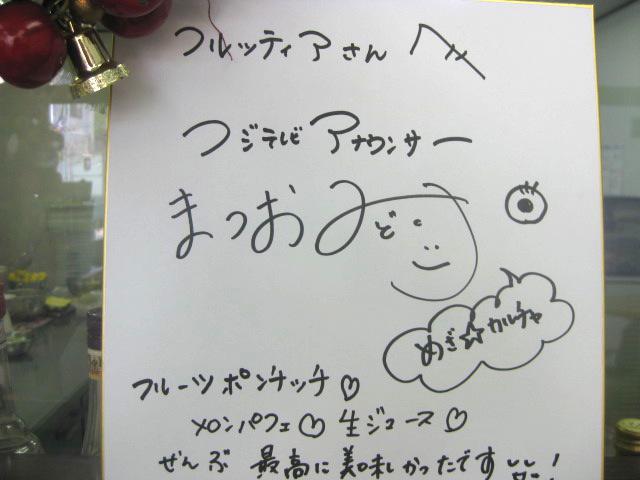 フルッティアさんへ
フジテレビアナウンサー
まつおみどり
めざ☆カルチャ
フルーツポンチッチ♡
メロンパフェ♡生ジュース♡
ぜんぶ 最高に美味しかったです!